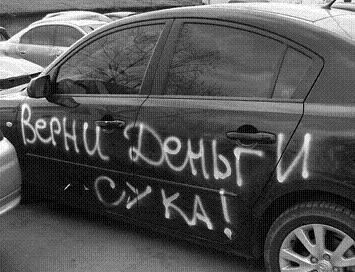 Верни Деньги
сука!